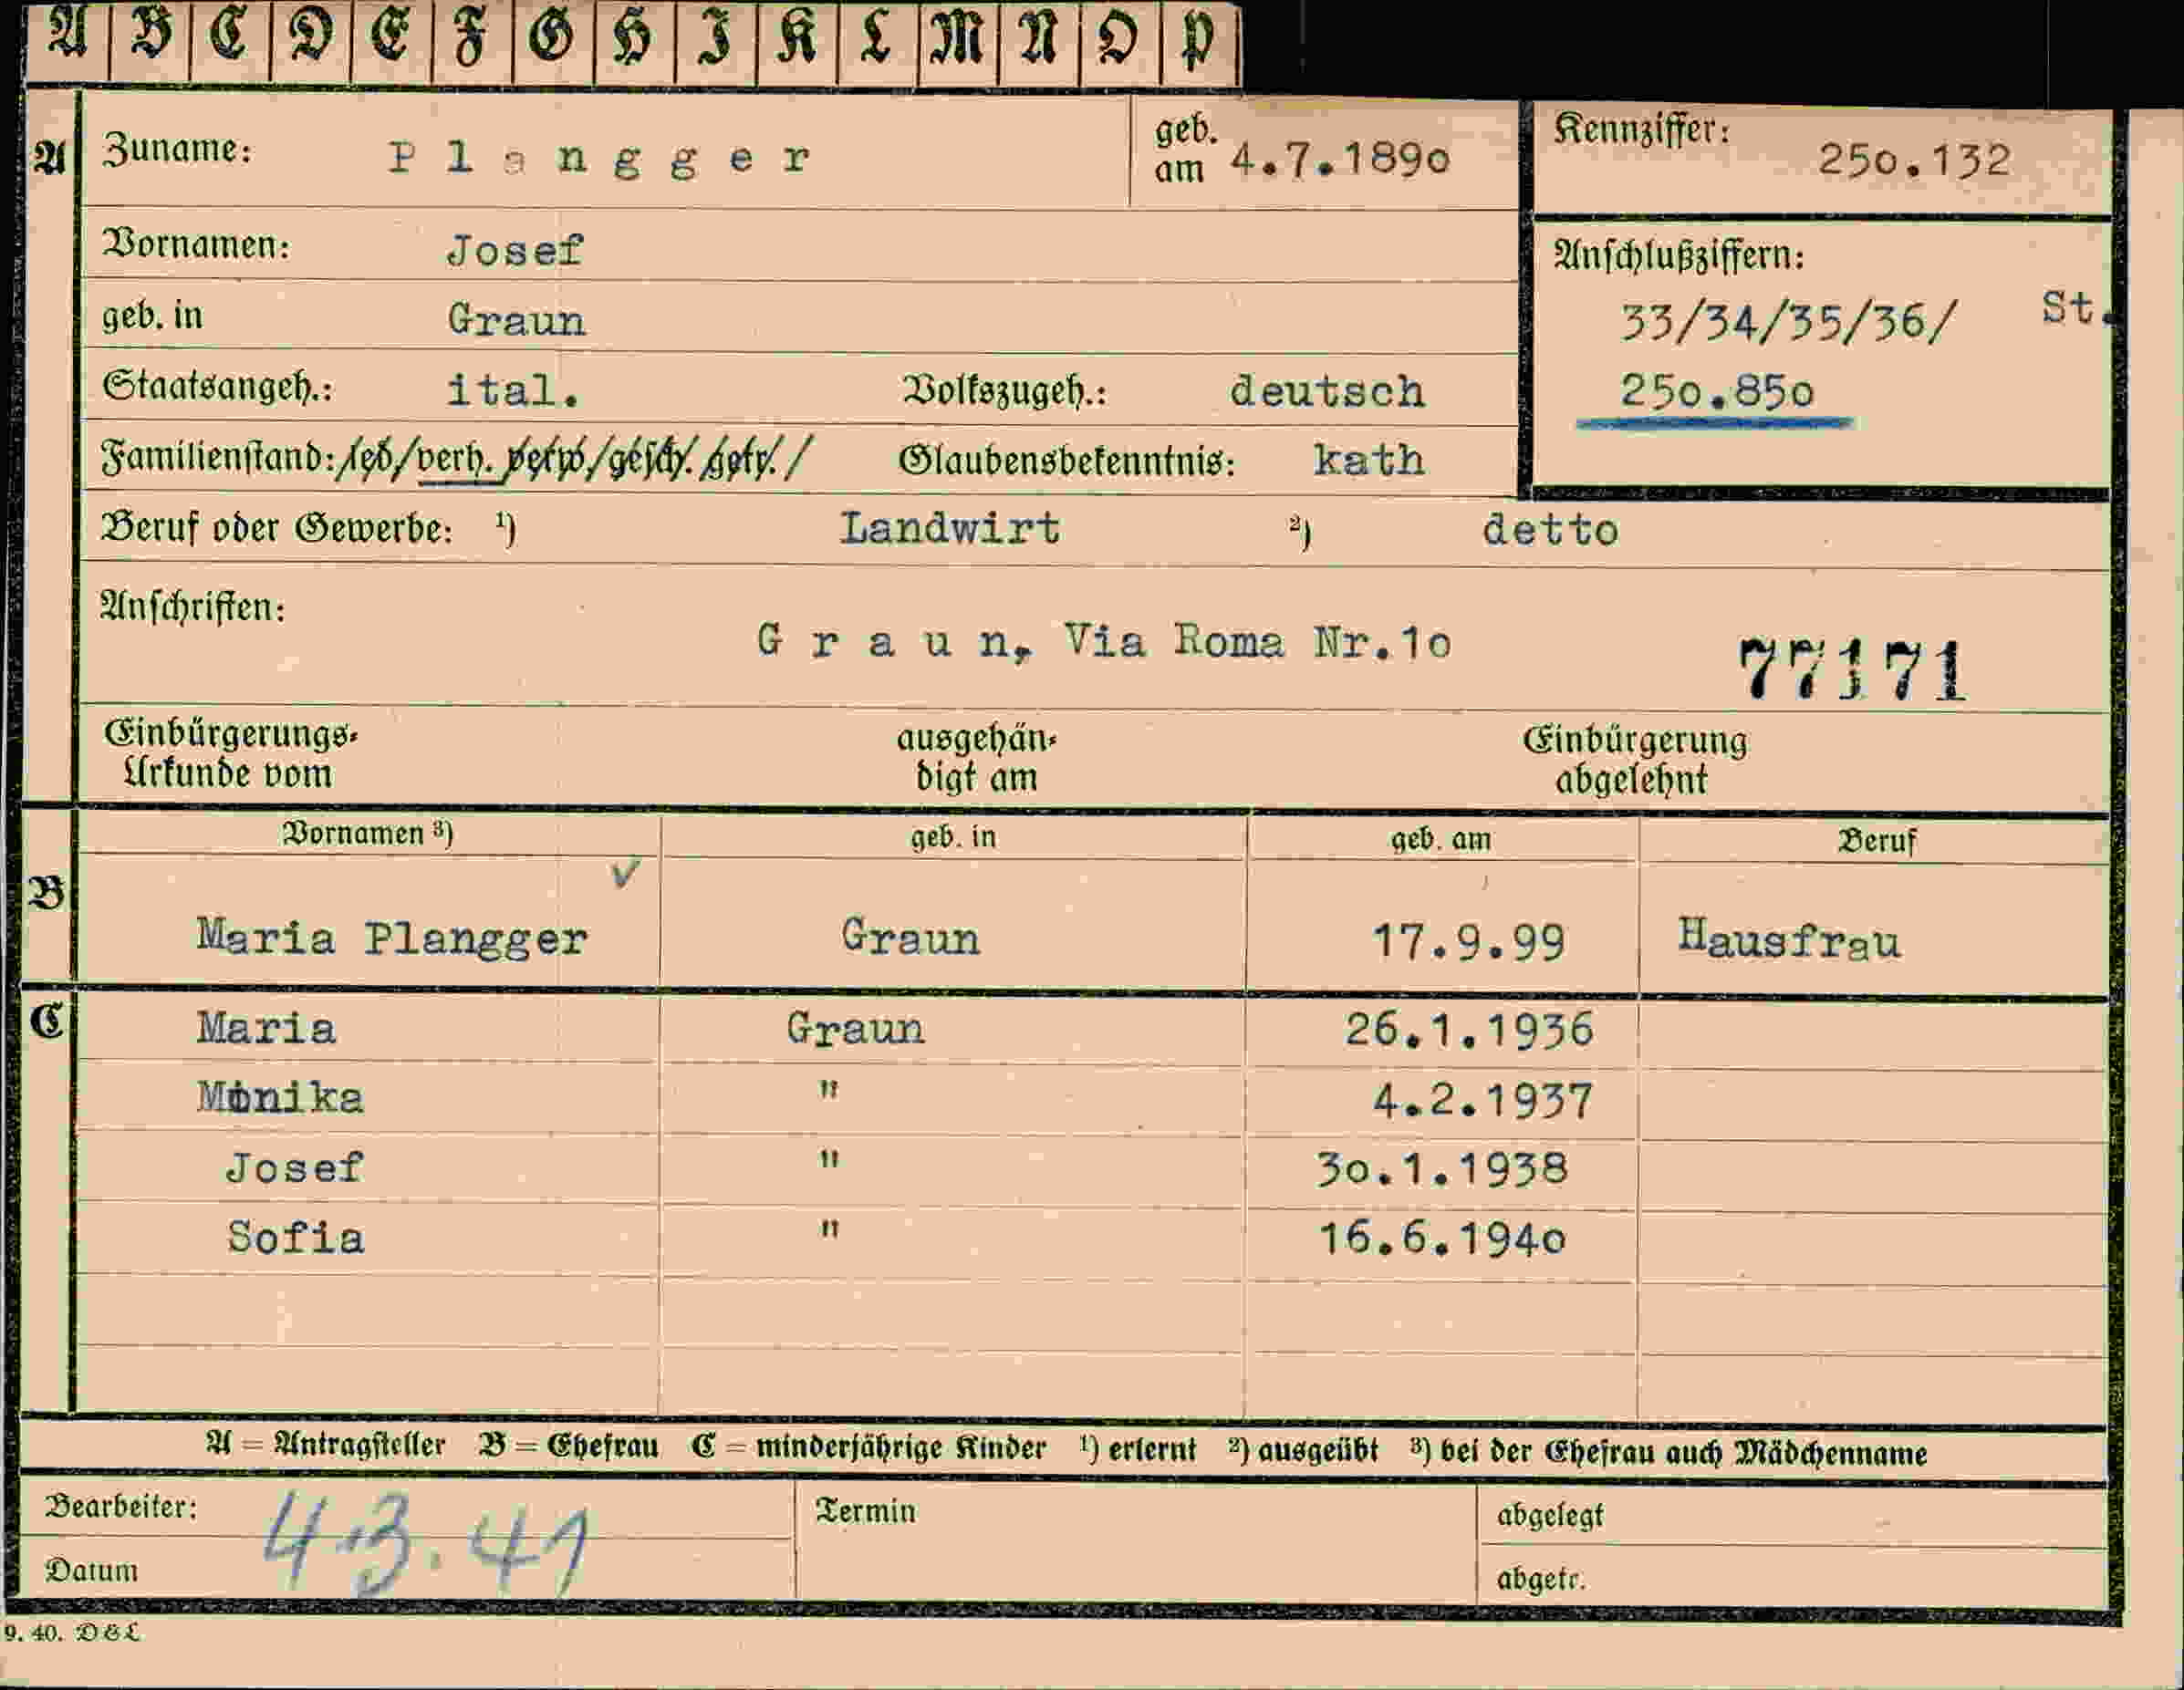 A B C D E F G H I K L M N O P
A Zuname: Plangger geb. am 4.7.1890 Kennziffer: 250.132
Vornamen: Josef Anschlußziffern:
geb. in Graun 33/34/35/36/ St.
Staatsangeh.: ital. Volkszugeh.: deutsch 250.850
Familienstand: led/verh. verw/gesch. getr. / Glaubensbekenntnis: kath
Beruf oder Gewerbe: ¹) Landwirt ²) detto
Anschriften:
Graun, Via Roma Nr.10 77171
Einbürgerungs- ausgehän- Einbürgerung
Urkunde vom digt am abgelehnt
Vornamen ³) geb. in geb. am Beruf
B ✓
Maria Plangger Graun 17.9.99 Hausfrau
C Maria Graun 26.1.1936
Monika " 4.2.1937
Josef " 30.1.1938
Sofia " 16.6.1940
A = Antragsteller B = Ehefrau C = minderjährige Kinder ¹) erlernt ²) ausgeübt ³) bei der Ehefrau auch Mädchenname
Bearbeiter: 4.3.41 Termin abgelegt
Datum abgetr.
9. 40. D&L